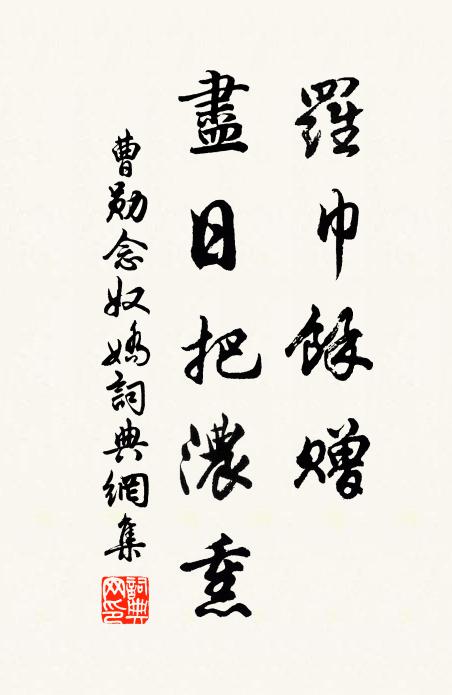 羅巾餘贈
盡日把濃熏
曹勛念奴嬌詞典網集
詞典网印